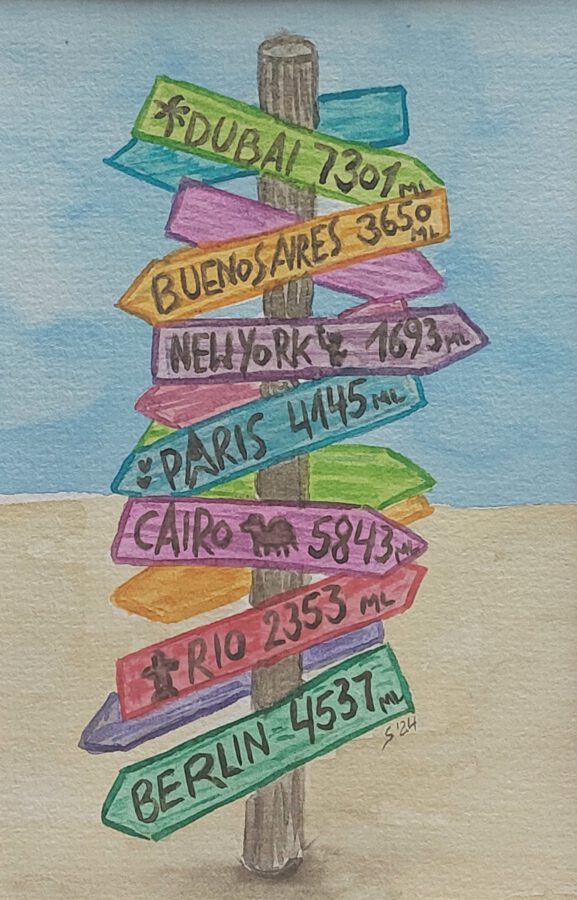 DUBAI 7301 ML
BUENOS AIRES 3650 ML
NEW YORK 1693 ML
PARIS 4145 ML
CAIRO 5843 ML
RIO 2353 ML
BERLIN 4537 ML
S '24